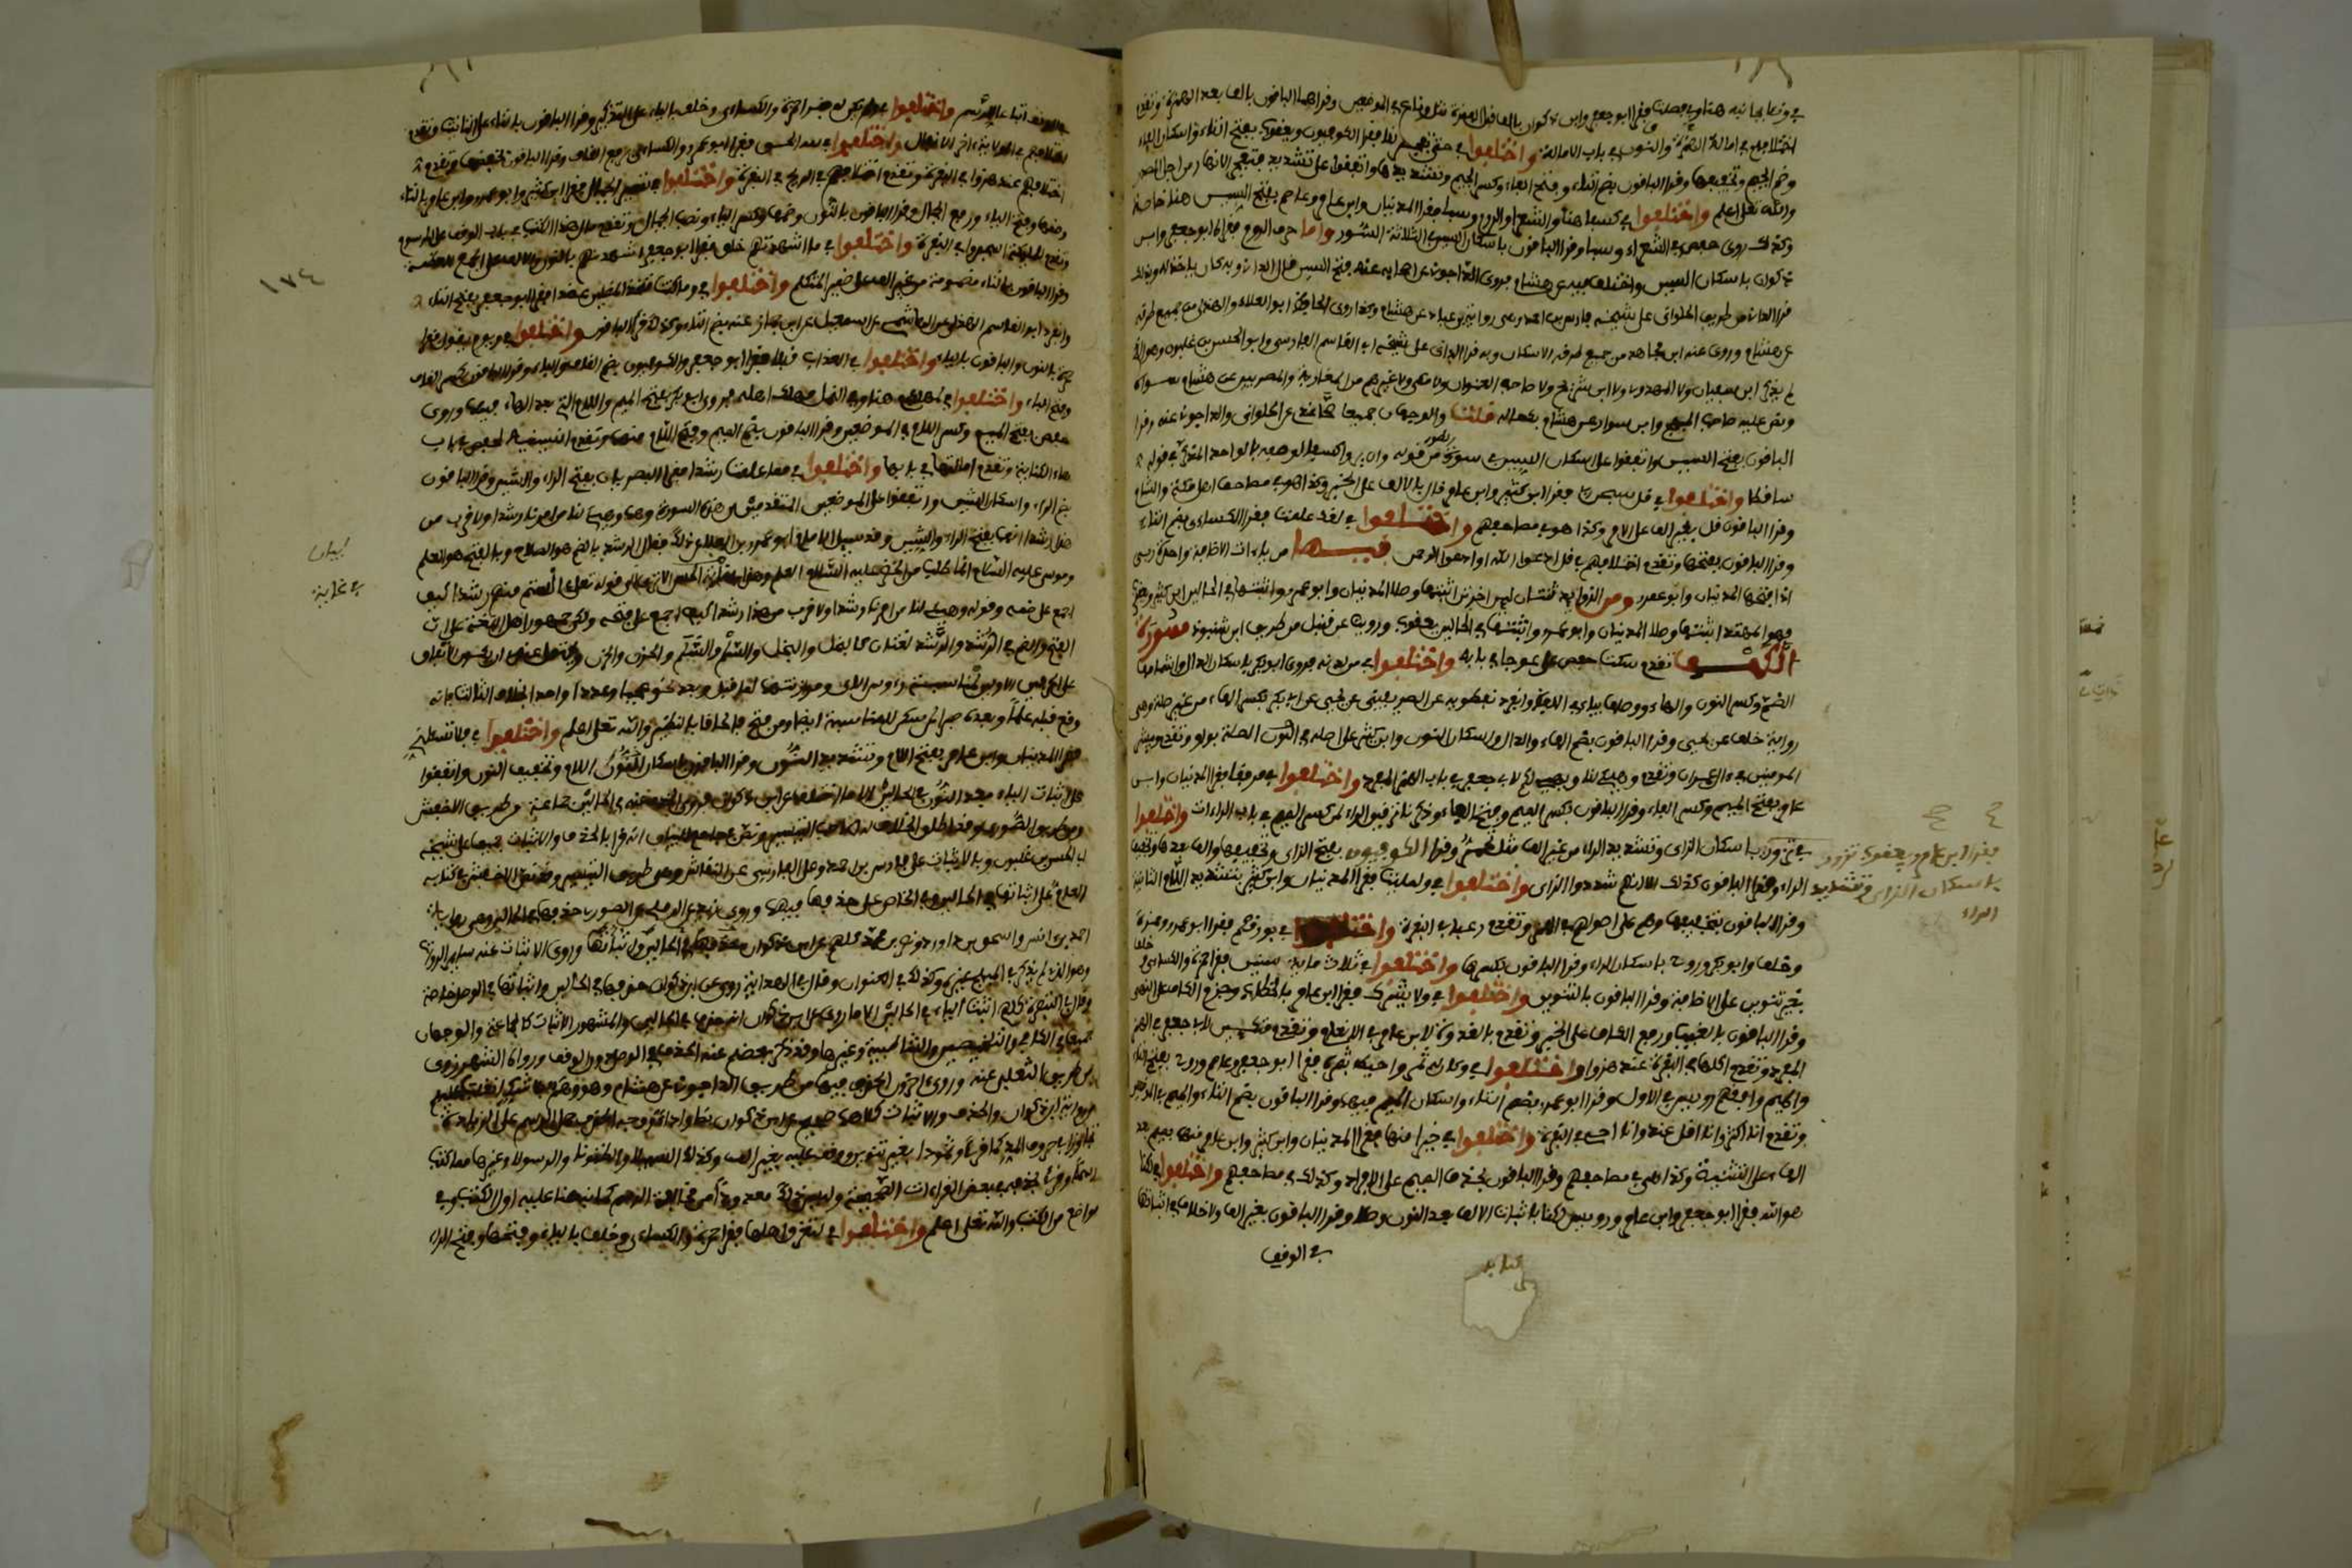 في ونئا بجانبه هنا وفي فصلت فقرا ابو جعفر وابن ذكوان بالف قبل الهمزة مثل وناع في الموضعين وقراهما الباقون بالف بعد الهمزة وتقدم
اختلافهم في امالة الهمزة والنون في باب الامالة واختلفوا في حتى تفجر لنا فقرا الكوفيون ويعقوب بفتح التاء واسكان الفاء
وضم الجيم وتخفيفها وقرا الباقون بضم التاء وفتح الفاء وكسر الجيم وتشديدها واتفقوا على تشديد فتفجر الانهار من اجل المصدر
والله تعلى اعلم واختلفوا في كسفا هنا والشعرا والروم وسبا فقرا المدنيان وابن عامر وعاصم بفتح السين هنا خاصة
وكذلك روى حفص في الشعراء وسبا وقرا الباقون باسكان السين في الثلاثة السور واما حرف الروم فقراه ابو جعفر وابن
ذكوان باسكان السين واختلف فيه عن هشام فروى الداجوني عن اصحابه عنه فتح السين قال الداني وبه كان ياخذ له وبذلك
قرا الداني من طريق الحلواني على شيخه فارس بن احمد وهي رواية بن عباد عن هشام وكذا روى الحافظ ابو العلاء والهذلي من جميع طرقه
عن هشام وروى عنه ابن مجاهد من جميع طرقه الاسكان وبه قرا الداني على شيخه ابي القاسم الفارسي وابي الحسن بن غلبون وهو الذي
لم يذكر ابن سفيان ولا المهدوي ولا ابن شريح ولا صاحب العنوان ولا مكي ولا غيرهم من المغاربة والمصريين عن هشام سواه
ونص عليه صاحب المبهج وابن سوار عن هشام بكماله قلت والوجهان جميعا صحا عندي عن الحلواني والداجوني عنه وقرا
الباقون بفتح السين واتفقوا على اسكان السين في سورة الطور من قوله وان يروا كسفا لوصفه بالواحد المذكر في قوله
ساقطا واختلفوا في قل سبحن ربي فقرا ابن كثير وابن عامر قال بالالف على الخبر وكذا هو في مصاحف اهل مكة والشام
وقرا الباقون قل بغير الف على الامر وكذا هو في مصاحفهم واختلفوا في لقد علمت فقرا الكساءي بضم التاء
وقرا الباقون بفتحها وتقدم اختلافهم في قل ادعوا الله او ادعوا الرحمن فيها من ياءات الاضافة واحدة ربي
اذا فتحها المدنيان وابو عمرو ومن الزوايد ثنتان لين اخرتن اثبتها وصلا المدنيان وابو عمرو واثبتها في الحالين ابن كثير ويعقوب
فهو المهتد اثبتها وصلا المدنيان وابو عمرو واثبتها في الحالين يعقوب ورويت عن قنبل من طريق ابن شنبوذ سورة
الكهف تقدم سكت حفص على عوجا في بابه واختلفوا في من لدنه فروى ابو بكر باسكان الدال واشمامها
الضم وكسر النون والهاء ووصلها بياء في اللفظ وانفرد نفطويه عن الصريفيني عن يحيى عن ابي بكر بكسر الهاء من غير صلة وهي
رواية خلف عن يحيى وقرا الباقون بضم الهاء والدال واسكان النون وابن كثير على اصله في الصلة بواو وتقدم ويبشر
المومنين في ال عمران وتقدم وهيء لنا ويهيء لكم لابي جعفر في باب الهمز المفرد واختلفوا في مرفقا فقرا المدنيان وابن
عامر بفتح الميم وكسر الفاء وقرا الباقون بكسر الميم وفتح الفاء وذكرنا ترقيق الراء لمن كسر الميم في باب الراءات واختلفوا
في تزور باسكان الزاي وتشديد الراء من غير الف مثل تحمر وقرا الكوفيون بفتح الزاي وتخفيفها والف بعدها وتخفيف
فقرا ابن عامر ويعقوب تزور
باسكان الزاي وتشديد
الراء
الراء وقرا الباقون كذلك الا انهم شددوا الزاي واختلفوا في ولملئت فقرا المدنيان وابن كثير بتشديد اللام الثانية
وقرا الباقون بتخفيفها وهم على اصولهم في الهمز وتقدم رعبا في البقرة واختلفوا في بورقكم فقرا ابو عمرو وحمزة
وخلف وابو بكر وروح باسكان الراء وقرا الباقون بكسرها واختلفوا في ثلاث ماية سنين فقرا حمزة والكساءي وخلف
بغير تنوين على الاضافة وقرا الباقون بالتنوين واختلفوا في ولا يشرك فقرا ابن عامر بالخطاب وجزم الكاف على النهي
وقرا الباقون بالغيب ورفع الكاف على الخبر وتقدم بالغدوة لابن عامر في الانعام وتقدم متكين لابي جعفر في الهمز
المفرد وتقدم اكلها في البقرة عند هزوا واختلفوا في وكان له ثمر واحيط بثمره فقرا ابو جعفر وعاصم وروح بفتح الثاء
والميم وافقهم رويس في الاول وقرا ابو عمرو بضم الثاء واسكان الميم فيهما وقرا الباقون بضم الثاء والميم في الموضعين
وتقدم انا اكثر وانا اقل عند وانا احيي في البقرة واختلفوا في خيرا منها فقرا المدنيان وابن كثير وابن عامر منهما بميم بعد
الهاء على التثنية وكذا هي في مصاحفهم وقرا الباقون بحذف الميم على الافراد وكذلك في مصاحفهم واختلفوا في لكنا
هو الله فقرا ابو جعفر وابن عامر ورويس لكنا باثبات الالف بعد النون وصلا وقرا الباقون بغير الف ولا خلاف في اثباتها
في الوقف
الوقف اتباعا للرسم واختلفوا في ولم تكن له فقرا حمزة والكساءي وخلف بالياء على التذكير وقرا الباقون بالتاء على التانيث وتقدم
اختلافهم في الولاية اخر الانفال واختلفوا في لله الحق فقرا ابو عمرو والكساءي برفع القاف وقرا الباقون بخفضها وتقدم
اختلافهم عند هزوا في البقرة وتقدم اختلافهم في الريح في البقرة واختلفوا في نسير الجبال فقرا ابن كثير وابو عمرو وابن عامر بالتاء
وضمها وفتح الياء ورفع الجبال وقرا الباقون بالنون وضمها وكسر الياء ونصب الجبال وتقدم مال هذا الكتب في باب الوقف على المرسوم
وتقدم للملئكة اسجدوا في البقرة واختلفوا في ما اشهدتهم خلق فقرا ابو جعفر اشهدنهم بالنون والالف على الجمع للعظمة
وقرا الباقون بالتاء مضمومة من غير الف على ضمير المتكلم واختلفوا في وما كنت متخذ المضلين عضدا فقرا ابو جعفر بفتح التاء
وانفرد ابو القاسم الهذلي عن الهاشمي عن اسمعيل عن ابن جماز عنه بضم التاء وكذلك قرا الباقون واختلفوا في ويوم يقول فقرا
حمزة بالنون والباقون بالياء واختلفوا في العذاب قبلا فقرا ابو جعفر والكوفيون بضم القاف والباء وقرا الباقون بكسر القاف
وفتح الباء واختلفوا في لمهلكهم هنا وفي النمل مهلك اهله فروى ابو بكر بفتح الميم واللام التي بعد الهاء فيهما وروى
حفص بفتح الميم وكسر اللام في الموضعين وقرا الباقون بضم الميم وفتح اللام فيهما وتقدم انسنيه لحفص في باب
هاء الكناية وتقدم امالتها في بابها واختلفوا في مما علمت رشدا فقرا البصريان بفتح الراء والشين وقرا الباقون
بضم الراء واسكان الشين واتفقوا على الموضعين المتقدمين من هذه السورة وهما وهيء لنا من امرنا رشدا ولاقرب من
هذا رشدا انهما بفتح الراء والشين وقد سيل الامام ابو عمرو بن العلاء عن ذلك فقال الرشد بالضم هو الصلاح وبالفتح هو العلم
وموسى عليه السلام انما طلب من الخضر عليه السلام العلم وهذا في غاية الحسن الا ترى الى قوله تعلى فان انستم منهم رشدا كيف
لبيان
في غاية
اجمع على ضمه وقوله وهيء لنا من امرنا رشدا ولاقرب من هذا رشدا كيف اجمع على فتحه ولكن جمهور اهل اللغة على ان
الفتح والضم في الرشد والرشد لغتان كالبخل والبخل والسقم والسقم والحزن والحزن فيحتمل عندي ان يكون الاتفاق
على فتح الحرفين الاولين لمناسبة رءوس الاي وموازنتها لما قبل وبعد نحو عجبا وعددا واحدا بخلاف الثالث فانه
وقع قبله علما وبعده صبرا فمن سكن للمناسبة ايضا ومن فتح فالحاقا بالنظير والله تعلى اعلم واختلفوا في فلا تسئلني
فقرا المدنيان وابن عامر بفتح اللام وتشديد النون وقرا الباقون باسكان اللام وتخفيف النون واتفقوا
على اثبات الياء بعد النون في الحالين الا ما اختلف عن ابن ذكوان فروى الحذف عنه في الحالين جماعة من طريق الاخفش
ومن طريق الصوري وقد اطلق الخلاف له صاحب التيسير ونص في جامع البيان انه قرا بالحذف والاثبات جميعا على شيخه
ابي الحسن بن غلبون وبالاثبات على فارس بن احمد وعلى الفارسي عن النقاش وهي طريق التيسير وقد نص الاخفش في كتابه
العام على اثباتها في الحالين وفي الخاص على حذفها فيهما وروى زيد عن الرملي عن الصوري حذفها في الحالين وهي رواية
احمد بن انس واسحق بن داود ومضر بن محمد كلهم عن ابن ذكوان حذفها في الحالين اثباتها وروى الاثبات عنه ساير الرواة
وهو الذي لم يذكر في المبهج غيره وكذلك في العنوان وقال في الهداية روي عن ابن ذكوان حذفها في الحالين واثباتها في الوصل خاصة
وقال في التبصرة كلهم اثبت الياء في الحالين الا ما روي عن ابن ذكوان انه حذف في الحالين والمشهور الاثبات كالجماعة والوجهان
جميعا في الكافي والتلخيص والشاطبية وغيرها وقد ذكر بعضهم عنه الحذف في الوصل دون الوقف ورواه الشهرزوري
من طريق الثعلبي عنه وروى اخرون الحذف فيها من طريق الداجوني عن هشام وهو وهم بلا شك انقلب عليهم
من رواية ابن ذكوان والحذف والاثبات كلاهما صحيح عن ابن ذكوان نصا واداء ووجه الحذف حمل الرسم على الزيادة
تجاوزا في حروف المد كما قرئ وثمودا بغير تنوين ووقف عليه بغير الف وكذلك السبيلا والظنونا والرسولا وغيرها مما كتب
رسما وقرئ بحذفه في بعض القراءات الصحيحة وليس ذلك معدودا من مخالفة الرسم كما نبهنا عليه اول الكتاب وفي
مواضع من الكتب والله تعلى اعلم واختلفوا في لتغرق اهلها فقرا حمزة والكساءي وخلف بالياء وفتحها وفتح الراء
١٧٤